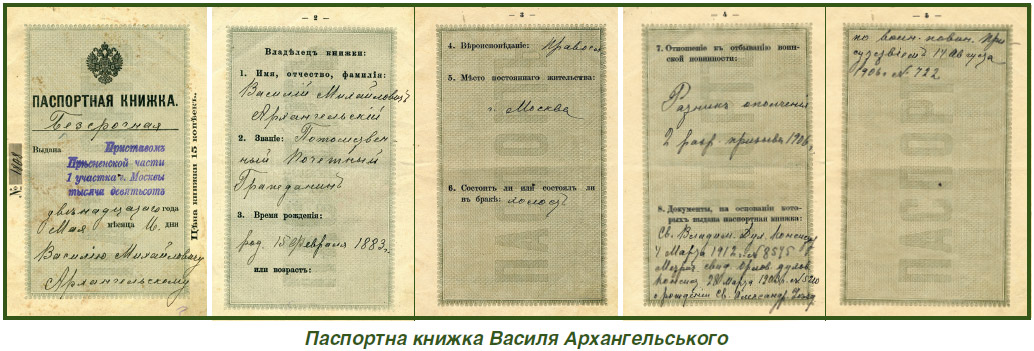 ПАСПОРТНАЯ КНИЖКА.
Безсрочная
Выдана Приставомъ
Прѣсненской части
1 участка г. Москвы
тысяча девятьсотъ
двѣнадцатаго года
Мая мѣсяца 16 дни
Василію Михайловичу
Архангельскому
№
Цѣна книжки 15 копѣекъ.
— 2 —
Владѣлецъ книжки:
1. Имя, отчество, фамилія:
Василій Михайловичъ
Архангельскій
2. Званіе: Потомствен-
ный Почетный
Гражданинъ
3. Время рожденія:
род. 15 Февраля 1883 г.
или возрастъ:
— 3 —
4. Вѣроисповѣданіе: Правосл
5. Мѣсто постояннаго жительства:
г. Москва
6. Состоитъ ли или состоялъ ли
въ бракѣ: холостъ
ПАСПОРТ
— 4 —
7. Отношеніе къ отбыванію воин-
ской повинности:
Ратникъ ополченія
2 разр. призыва 1906 г.
8. Документы, на основаніи кото-
рыхъ выдана паспортная книжка:
Св. Владим. Дух. Консист
4 Марта 1912 г. № 8575
28 Марта
о рожденіи Св. Александр.
— 5 —
по воин. повин. При
сутствіемъ 17 Августа
1906 г. № 722
ПАСПОРТ
Паспортна книжка Василя Архангельського